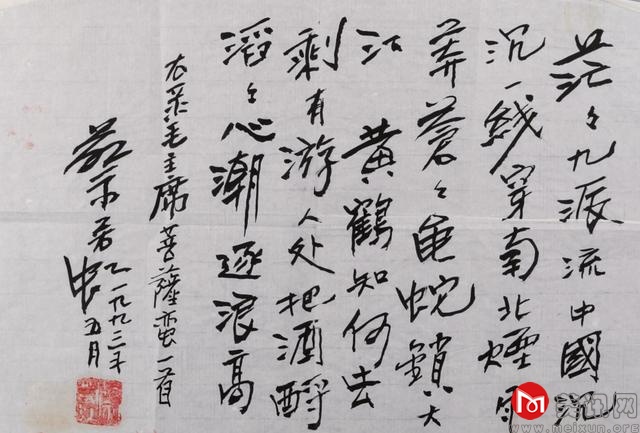 茫々九派流中國沉
沉一綫穿南北煙雨
莽蒼々龜蛇鎖大
江 黄鶴知何去
剩有游人处把酒酹
滔々心潮逐浪高
右录毛主席菩薩蠻一首
蔡若虹一九九三年五月
美讯网
www.meixun.org